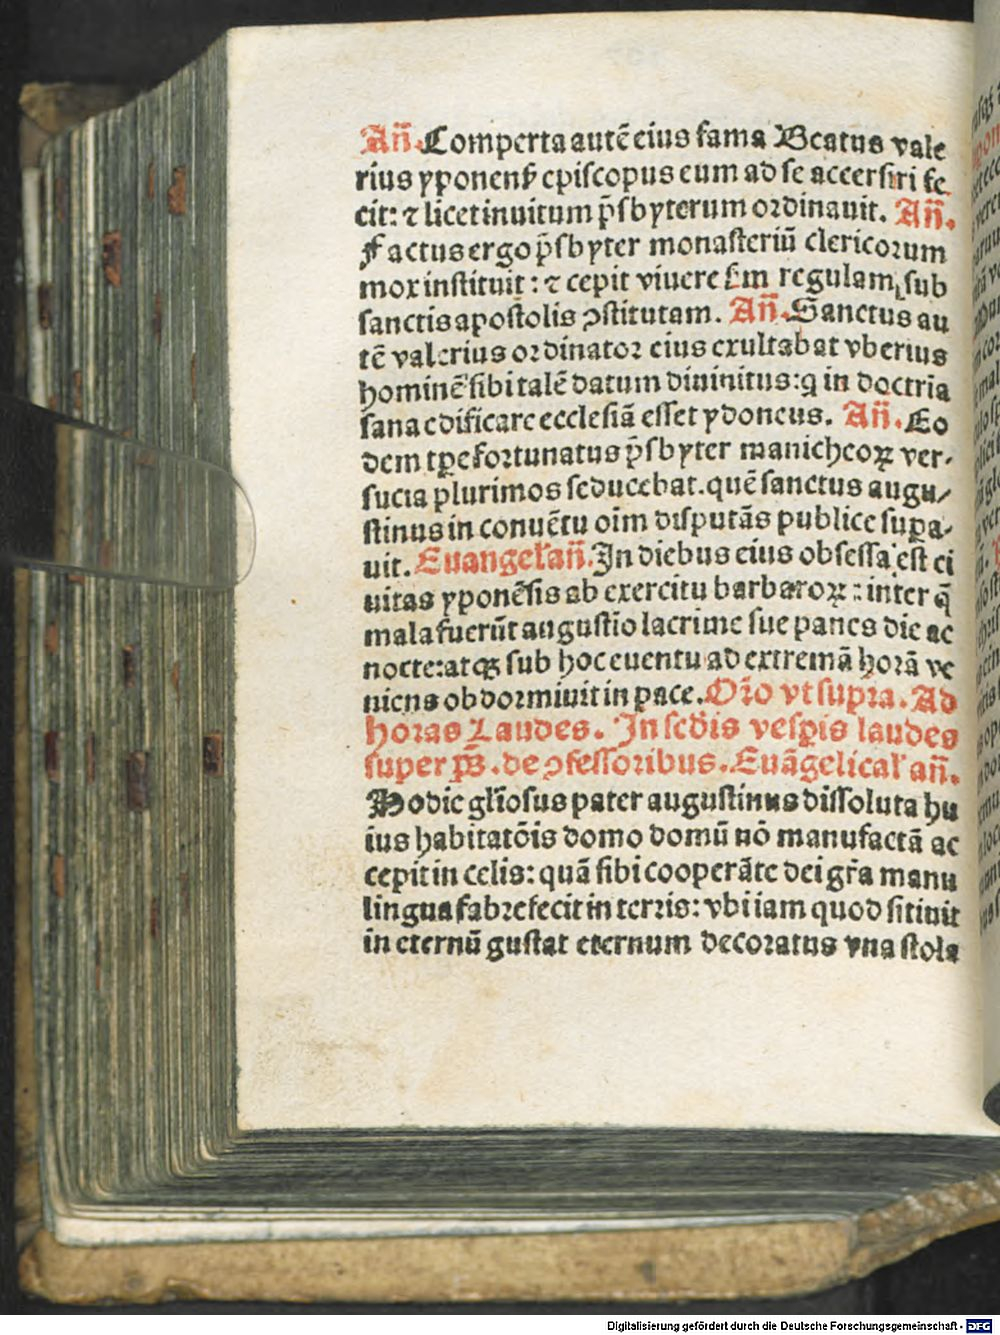 Añ. Comperta autē eius fama Beatus vale
rius yponenẜ episcopus eum ad se accersiri fe
cit: ⁊ licet inuitum p̄sbyterum ordinauit. Añ.
Factus ergo p̄sbyter monasteriū clericorum
mox instituit: ⁊ cepit viuere ẜm regulam sub
sanctis apostolis ꝯstitutam. Añ. Sanctus au
tē valerius ordinator eius exultabat vberius
hominē sibi talē datum diuinitus: ꝙ in doctria
sana edificare ecclesiā esset ydoneus. Añ. Eo
dem tꝑe fortunatus p̄sbyter manicheoꝝ ver-
sucia plurimos seducebat. quē sanctus augu/
stinus in conuētu oīm disputās publice supa-
uit. Euangel' añ. In diebus eius obsessa est ci
uitas yponēsis ab exercitu barbaroꝝ : inter q̄
mala fuerūt augustio lacrime sue panes die ac
nocte: atqꝫ sub hoc euentu ad extremā horā ve
niens obdormiuit in pace. Or̄o vt supra. Ad
horas Laudes. In scd'is vesꝑis laudes
super pš. de ꝯfessoribus. Euāgelical' añ.
Hodie gl'iosus pater augustinus dissoluta hu
ius habitatōis domo domū nō manufactā ac
cepit in celis: quā sibi cooperāte dei gr̄a manu
lingua fabrefecit in terris: vbi iam quod sitiuit
in eternū gustat eternum decoratus vna stola
Digitalisierung gefördert durch die Deutsche Forschungsgemeinschaft - DFG